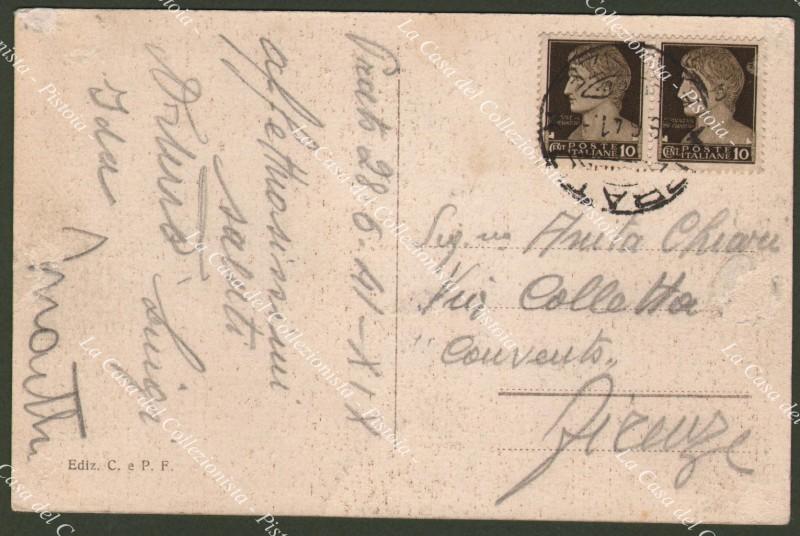 Prato 28.6.41-XIX
affettuosissimi
saluti
Arturo Luigi
Ida
POSTE ITALIANE
CENT 10
POSTE ITALIANE
CENT 10
Anita Chiari
Via Colletta
Convento.
Firenze
Ediz. C. e P. F.
La Casa del Collezionista - Pistoia